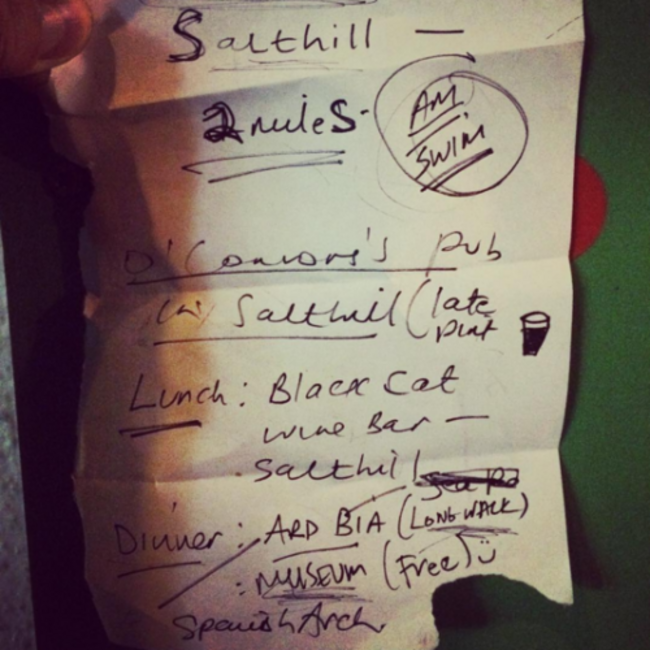 Salthill —
2 miles
AM
SWIM
O'Connors's Pub
(in Salthill (late
pint
Lunch: Black Cat
Wine Bar —
Salthill
Dinner: ARD BIA (LONG WALK)
: MUSEUM (Free)
Spanish Arch